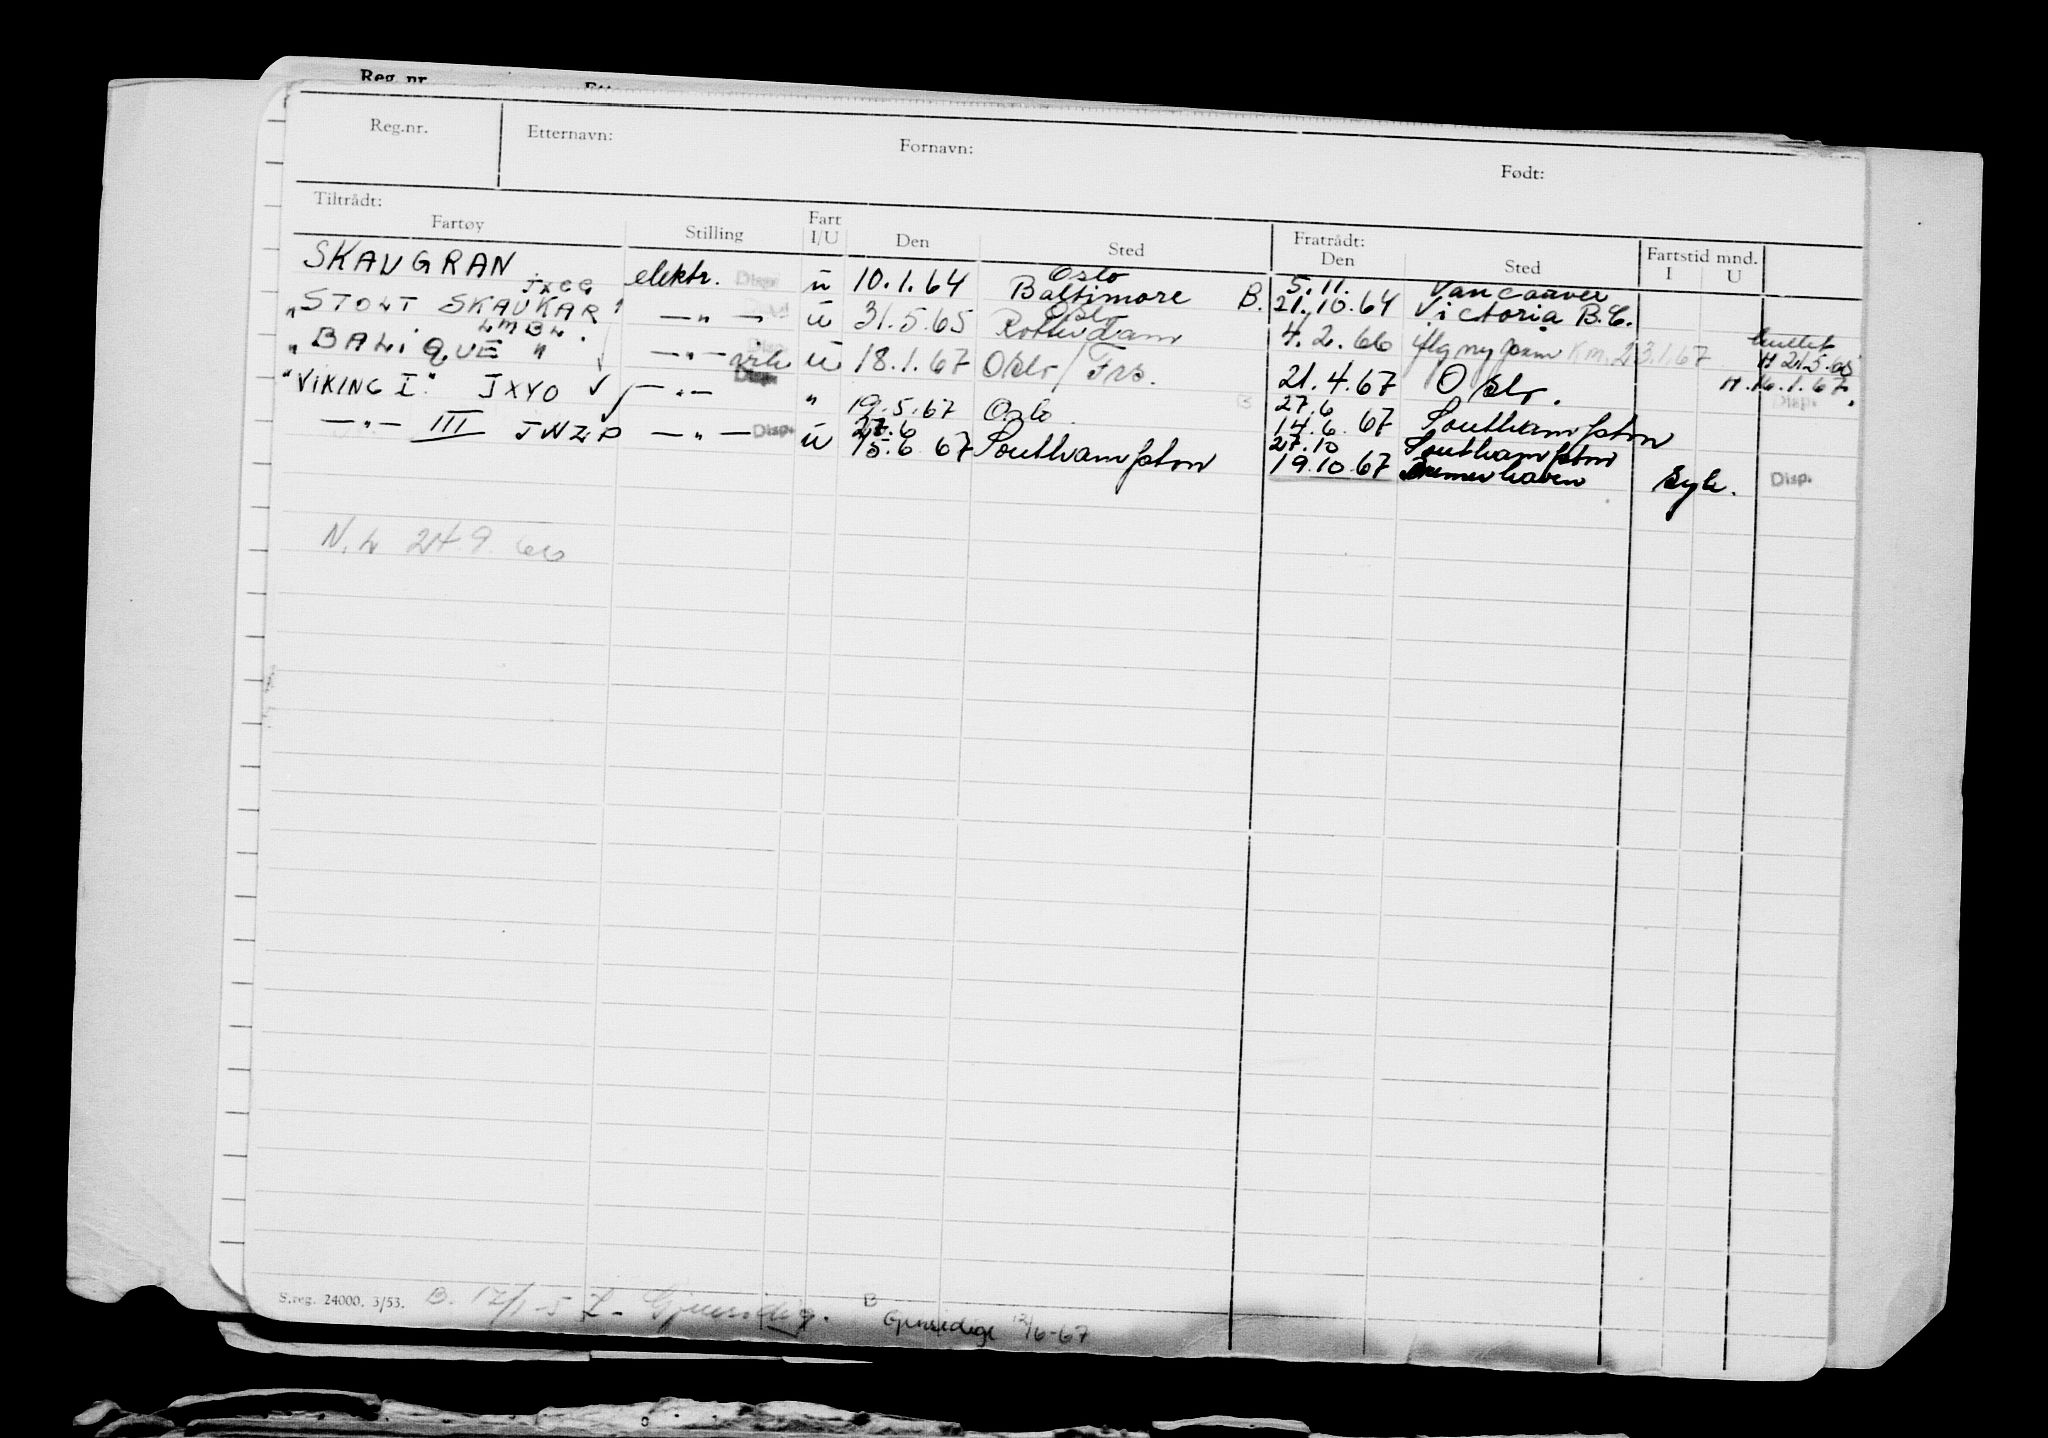 Reg. nr.
Reg.nr. Etternavn: Fornavn: Født:
Tiltrådt: Fratrådt:
Fartøy Stilling Fart I/U Den Sted Den Sted Fartstid mnd. I U
Oslo 5.11. Vancouver
SKAUGRAN JXCG elektr. Disp. u 10.1.64 Baltimore B. 21.10.64 Victoria B.C.
Oslo
"STOLT SKAUKAR" LMBL - " - u 31.5.65 Rotterdam 4.2.66 flg ny pam Km. 23.1.67 H 21.5.66
"BALIQUE" - " - vik u 18.1.67 Oslo/Frs. 21.4.67 Oslo. H. 16.1.67.
27.6
"VIKING I." JXYO - " - Disp. " 19.5.67 Oslo B 14.6.67 Southampton Disp.
27.6 27.10 Southampton
- " - III JWZP - " - Disp. u 15.6.67 Southampton 19.10.67 Bremerhaven Syk. Disp.
N.L 249.66
S.reg. 24000. 3/53. B. 17/1-57 - Gjensidig. B Gjensidige 12/6-67